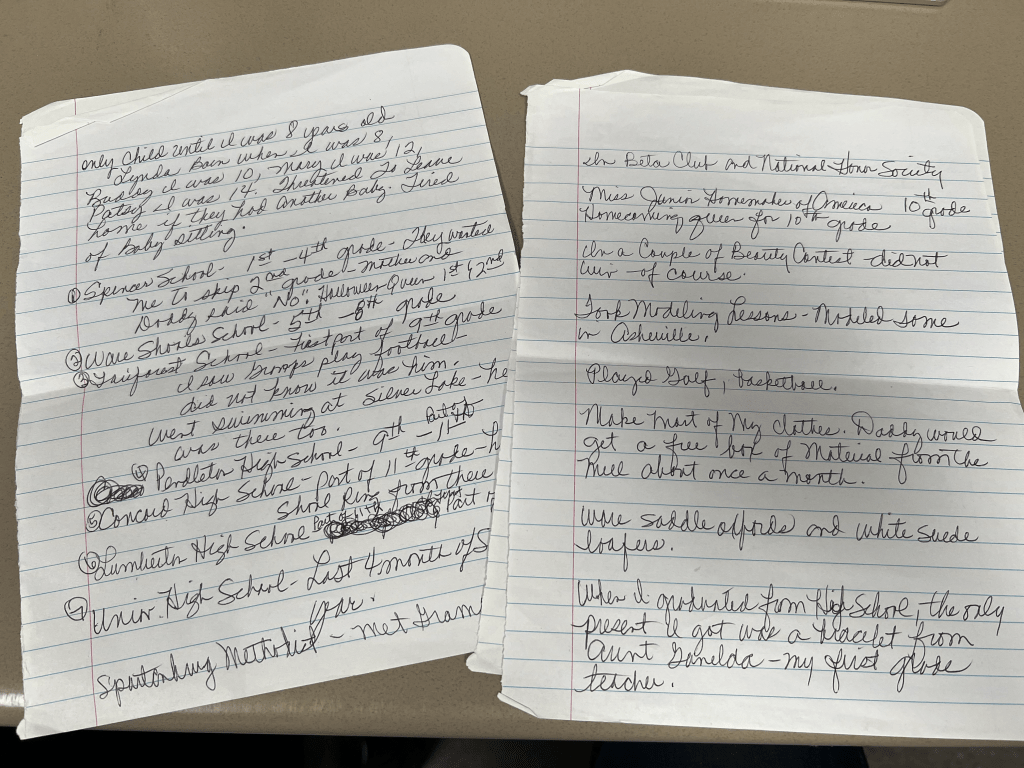 only Child until I was 8 years old
Lynda Born when I was 8,
Buddy I was 10, Mary I was 12,
Patsy I was 14. Threatened To Leave
home if they had another Baby. Tired
of Baby sitting.
① Spencer School - 1st - 4th grade - They wanted
me to skip 2nd grade - Mother and
Daddy said "No". Halloween Queen 1st & 2nd
② Ware Shoals School - 5th - 8th grade
③ Fairforest School - First part of 9th grade
I saw Gramps play football -
did not know it was him.
Went swimming at Silver Lake - he
was there too.
④ Pendleton High School - 9th - Part of 11th
⑤ Concord High School - Part of 11th grade -
School Ring from there
⑥ Lumberton High School Part of 11th Part
⑦ Univ. High School - Last 4 month of
year.
Spartanburg Methodist - Met Gram
In Beta Club and National Honor Society
Miss Junior Homemaker of America 10th grade
Homecoming queen for 10th grade
In a Couple of Beauty Contest - did not
win - of course.
Took Modeling Lessons - Modeled some
in Asheville.
Played Golf, basketball.
Make most of My clothes. Daddy would
get a free box of Material from the
Mill about once a month.
Wore saddle oxfords and white suede
loafers.
When I graduated from High School, the only
present I got was a bracelet from
Aunt Ganelda - my first grade
teacher.